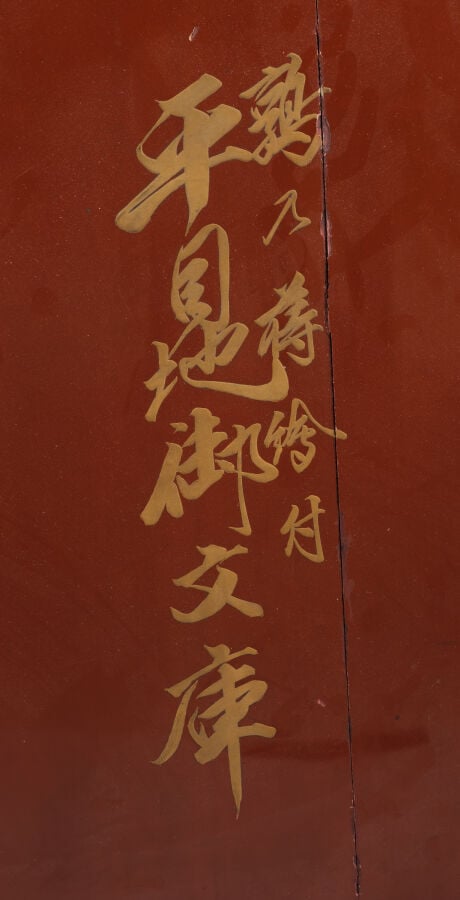 鶉乃蒔繪付
平目地御文庫